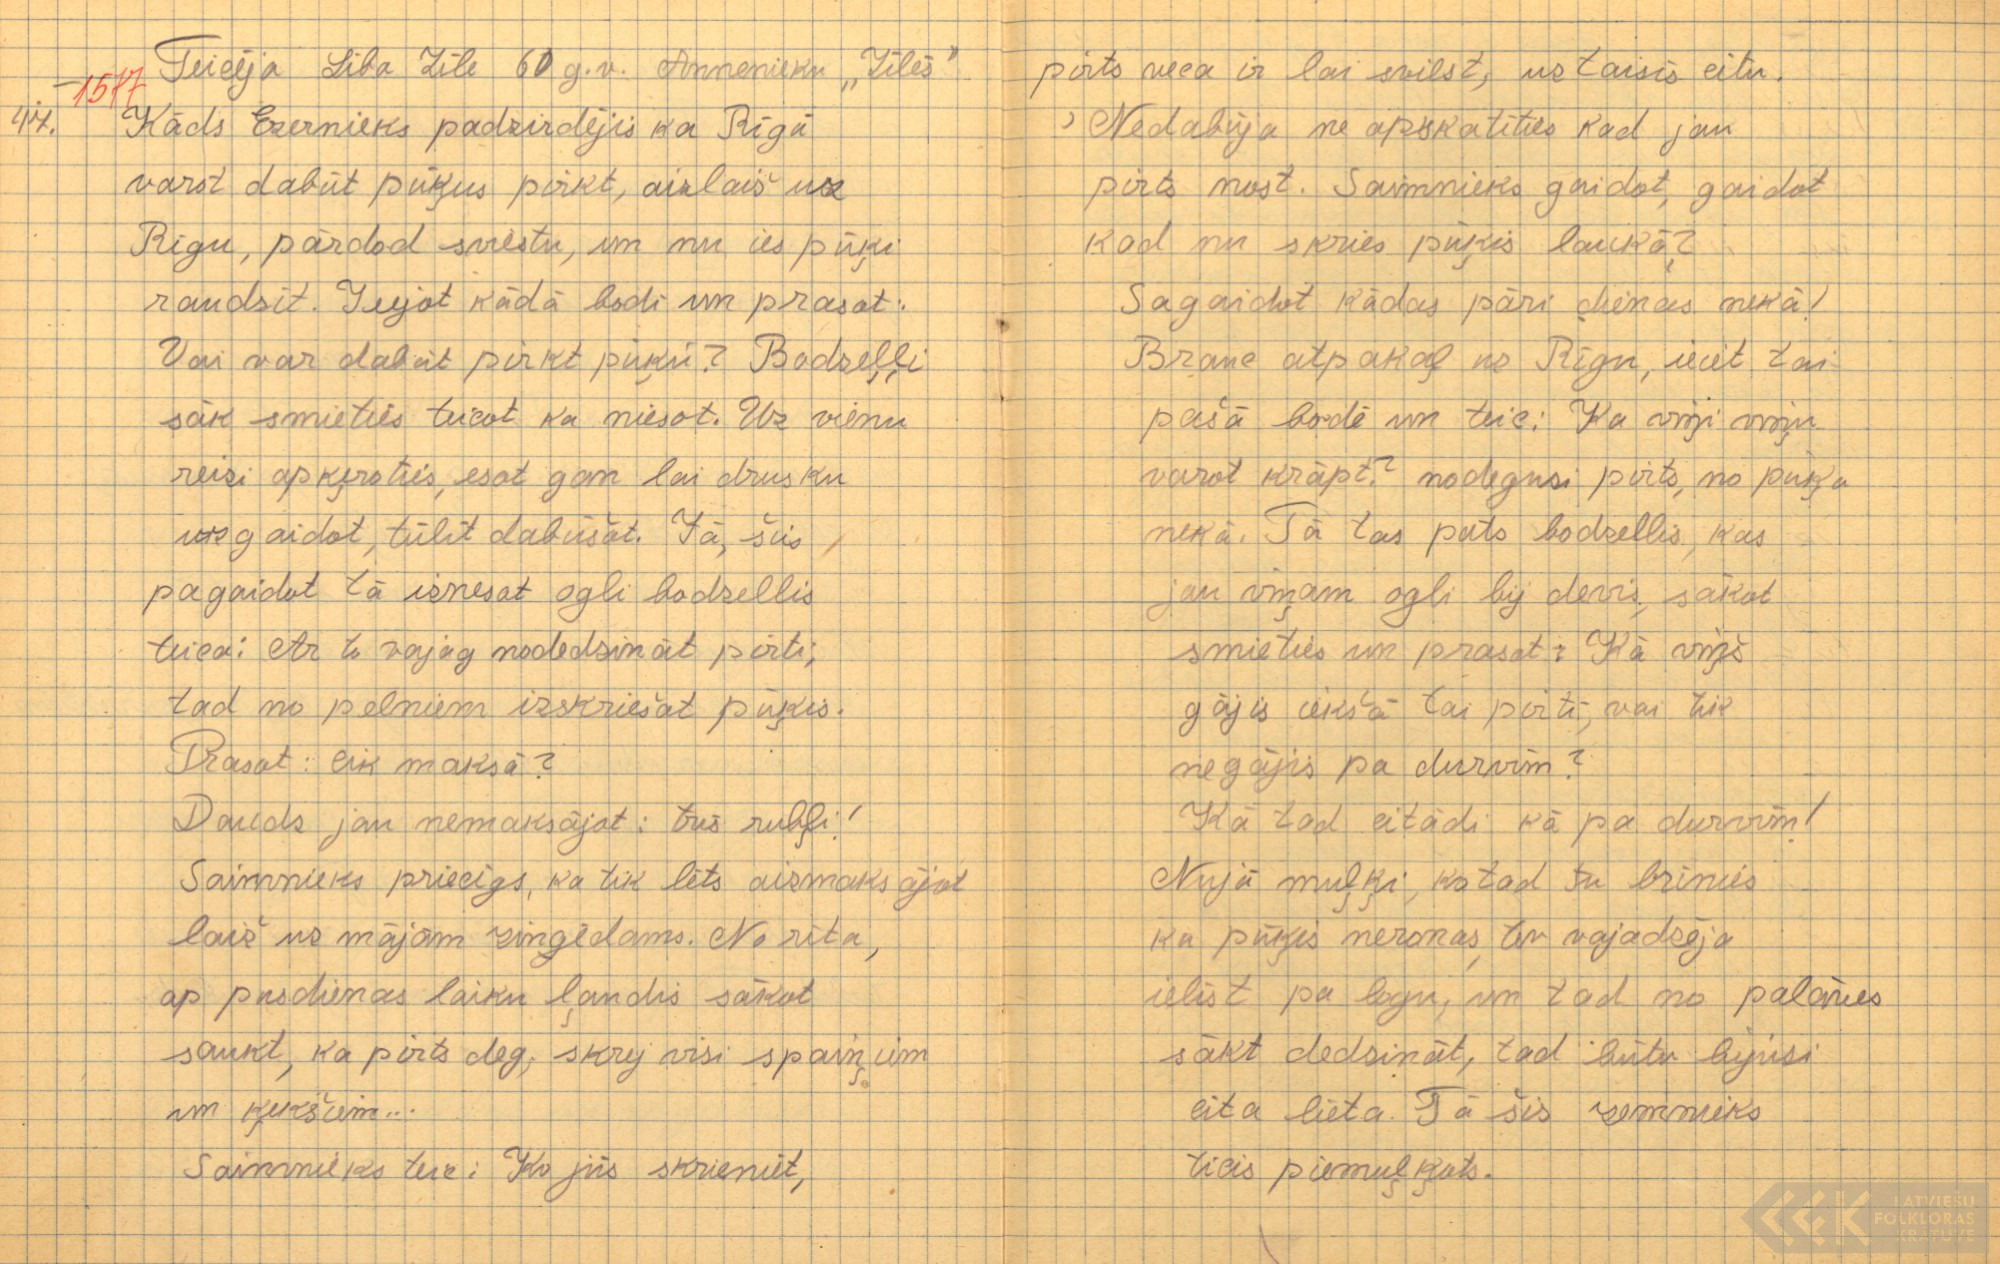 Teicēja Lība Zīle 60 g.v. Annenieku „Zīlēs”
1577
44. Kāds Ezernieks padzirdējis ka Rīgā
varot dabūt pūķus pirkt, aizlaiš uz
Rīgu, pārdod sviestu, un nu ies pūķi
raudzīt. Iejot kādā bodī un prasot:
Vai var dabūt pirkt pūķu? Bodzeļļi
sāk smieties teicot ka niesot. Uz vienu
reizi apķeroties, esot gan lai drusku
uzgaidot, tūlīt dabūšot. Jā, šis
pagaidot tā iznesot ogli bodzellis
teica: Ar to vajag nodedzināt pirti,
tad no pelniem izskriešot pūķis.
Prasot: cik maksā?
Daudz jau nemaksājot: trīs rubļi!
Saimnieks priecīgs, ka tik lēts aizmaksājot
laiž uz mājām zingēdams. No rīta,
ap pusdienas laiku ļaudis sākot
saukt, ka pirts deg, skrej visi spaiņiem
un ķekšiem...
Saimnieks teic: Ko jūs skrieniet,
pirts veca ir lai svilst, uztaisīs citu.
Nedabūja ne apskatīties kad jau
pirts nost. Saimnieks gaidot, gaidot
kad nu skries pūķis laukā?
Sagaidot kādas pāri dienas nekā!
Brauc atpakaļ uz Rīgu, ieiet tai
pašā bodē un teic: Ka viņi viņu
varot krāpt? nodegusi pirts, no pūķa
nekā. Tā tas pats bodzellis, kas
jau viņam ogli bij devis, sākot
smieties un prasot: Kā viņš
gājis iekšā tai pirtī, vai tik
negājis pa durvīm?
Kā tad citādi kā pa durvīm!
Nujā muļķi, ko tad tu brīnies
ka pūķis neronas, tev vajadzēja
ielīst pa logu, un tad no palāves
sākt dedzināt, tad būtu bijusi
cita lieta. Tā šis zemnieks
ticis piemuļķots.
LATVIEŠU
FOLKLORAS
KRĀTUVE